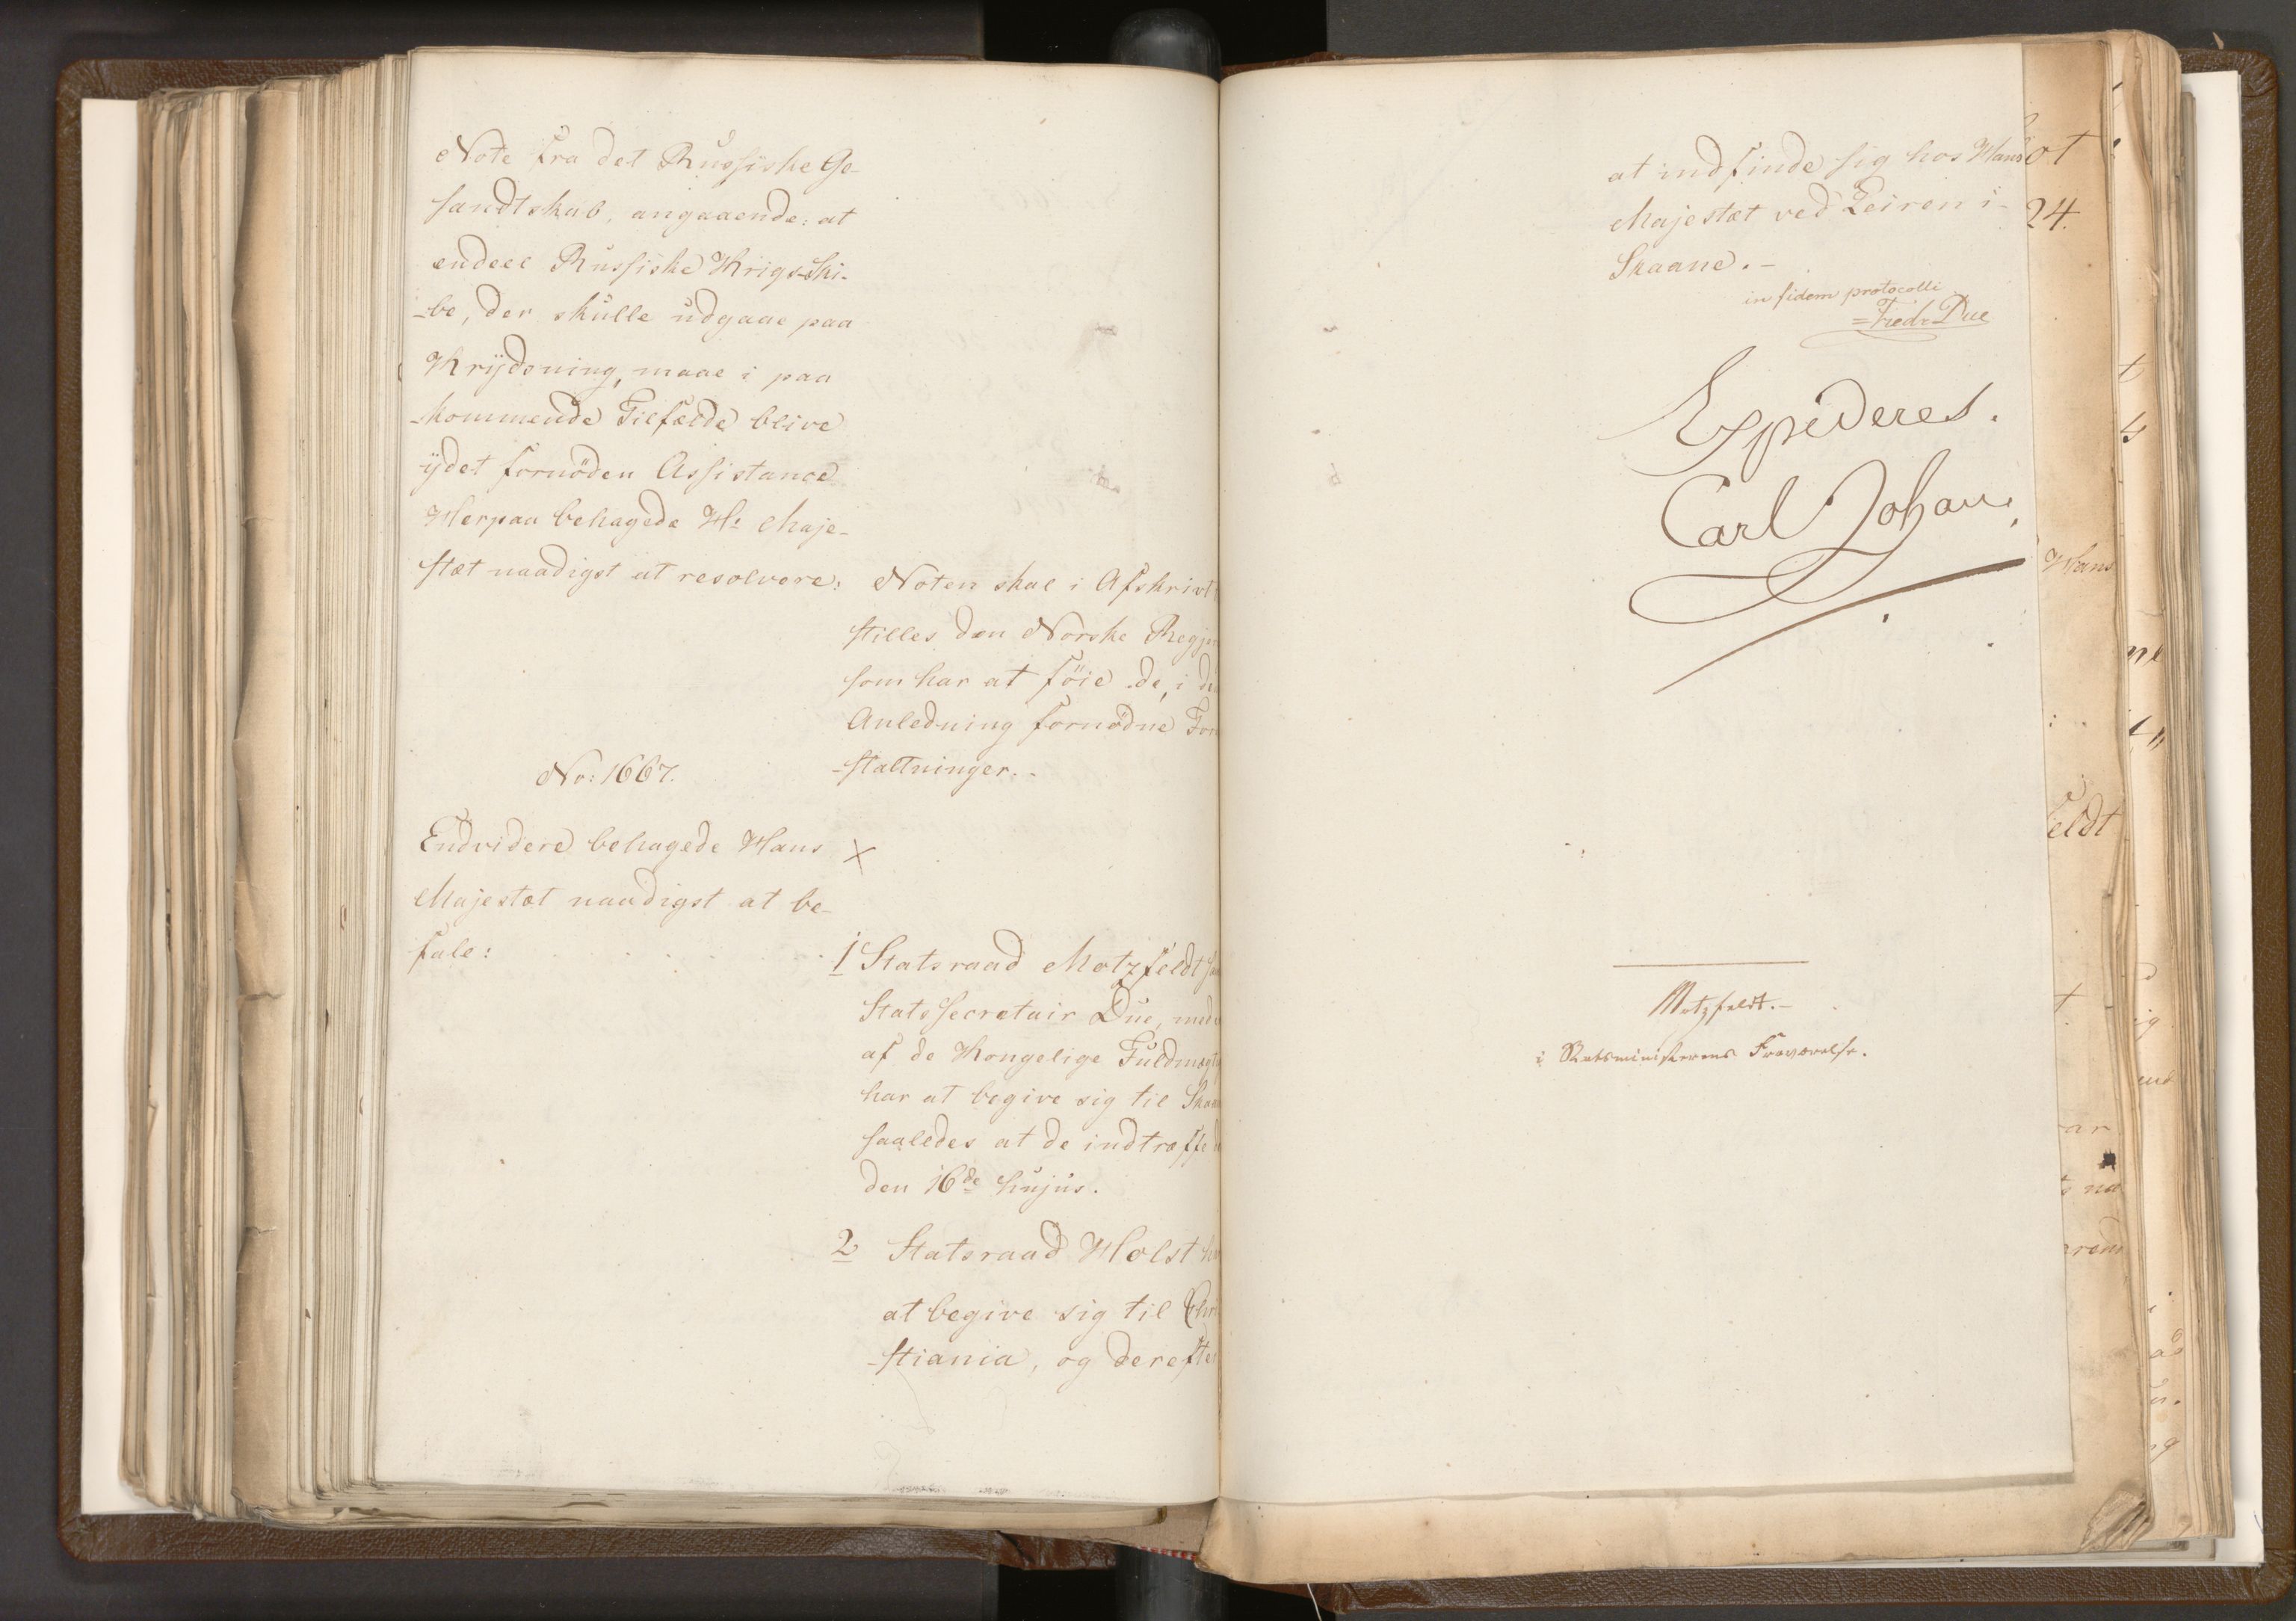 Note fra det Russiske Ge-
sandtskab, angaaende: at
endeel Russiske Krigs-Ski-
-be, der skulle udgaae paa
Krydsning, maae i paa
-kommende Tilfælde blive
ydet fornöden Assistance
Herpaa behagede Hs Maje-
stæt naadigst at resolvere:
Noten skal i Afskrivt
stilles den Norske Regje
som har at föie de, i d
Anledning fornödne For
-staltninger.-
No: 1667.
Endvidere behagede Hans
Majestæt naadigst at be-
fale:
X
1 Statsraad Motzfeldt sa
Statssecretair Due, med
af de Kongelige Fuldmægt
har at begive sig til Skaa
saaledes at de indtræffe
den 16de hujus.
2 Statsraad Holst h
at begive sig til Chri
-stiania, og derefter
at indfinde sig hos Hans
Majestæt ved Leiren i
Skaane.-
in fidem protocolli
Fredr Due
Expideres.
Carl Johan.
Motzfeldt.-
i Statsministerens Fraværelse.
ot
24.
Hans
feldt